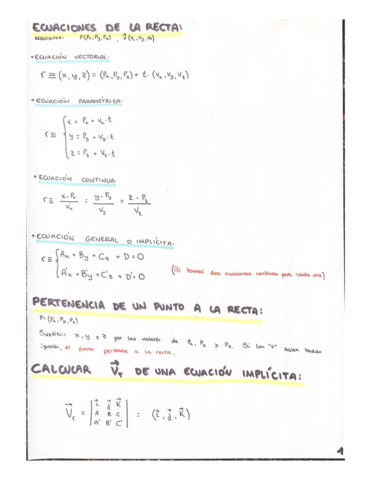 ECUACIONES DE LA RECTA:
REQUISITOS: P(Px, Py, Pz) , v⃗(vx, vy, vz)
• ECUACIÓN VECTORIAL:
r ≡ (x, y, z) = (Px, Py, Pz) + t · (vx, vy, vz)
• ECUACIÓN PARAMÉTRICA:
x = Px + vx · t
r ≡ y = Py + vy · t
z = Pz + vz · t
• ECUACIÓN CONTINUA:
r ≡ x - Px / vx = y - Py / vy = z - Pz / vz
• ECUACIÓN GENERAL O IMPLÍCITA:
r ≡ { Ax + By + Cz + D = 0
A'x + B'y + C'z + D' = 0
(Al tomar dos ecuaciones continuas por cada una)
PERTENENCIA DE UN PUNTO A LA RECTA:
P = (Px, Py, Pz)
Sustituir x, y, z por los valores de Px, Py y Pz. Si las "t" salen todas
iguales, el punto pertenece a la recta.
CALCULAR V⃗r DE UNA ECUACIÓN IMPLÍCITA:
i⃗ j⃗ k⃗
V⃗r = A B C = (i⃗, j⃗, k⃗)
A' B' C'
1